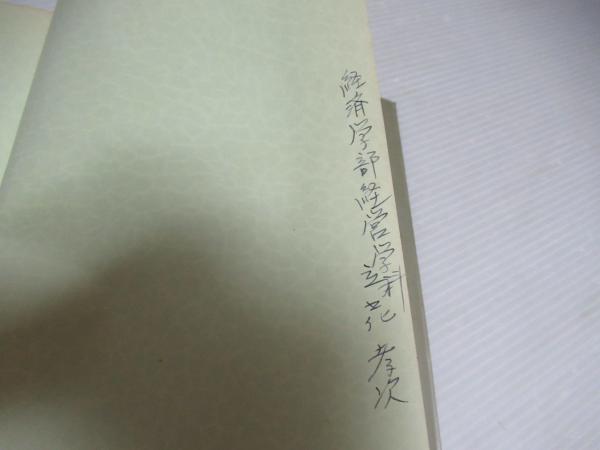 経済学部経営学科
立花 孝次